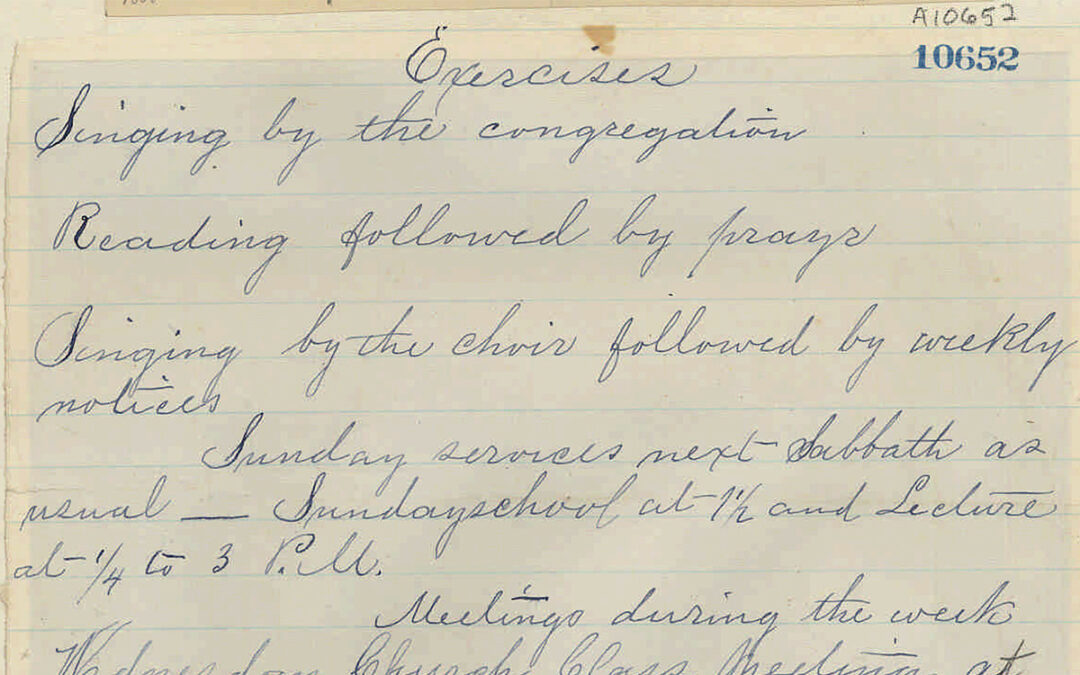 A10652
10652
Exercises
Singing by the congregation
Reading followed by prayr
Singing by the choir followed by weekly
notices
Sunday services next Sabbath as
usual — Sundayschool at 1½ and Lecture
at ¼ to 3 P.M.
Meetings during the week
Wednesday Church Class Meeting at